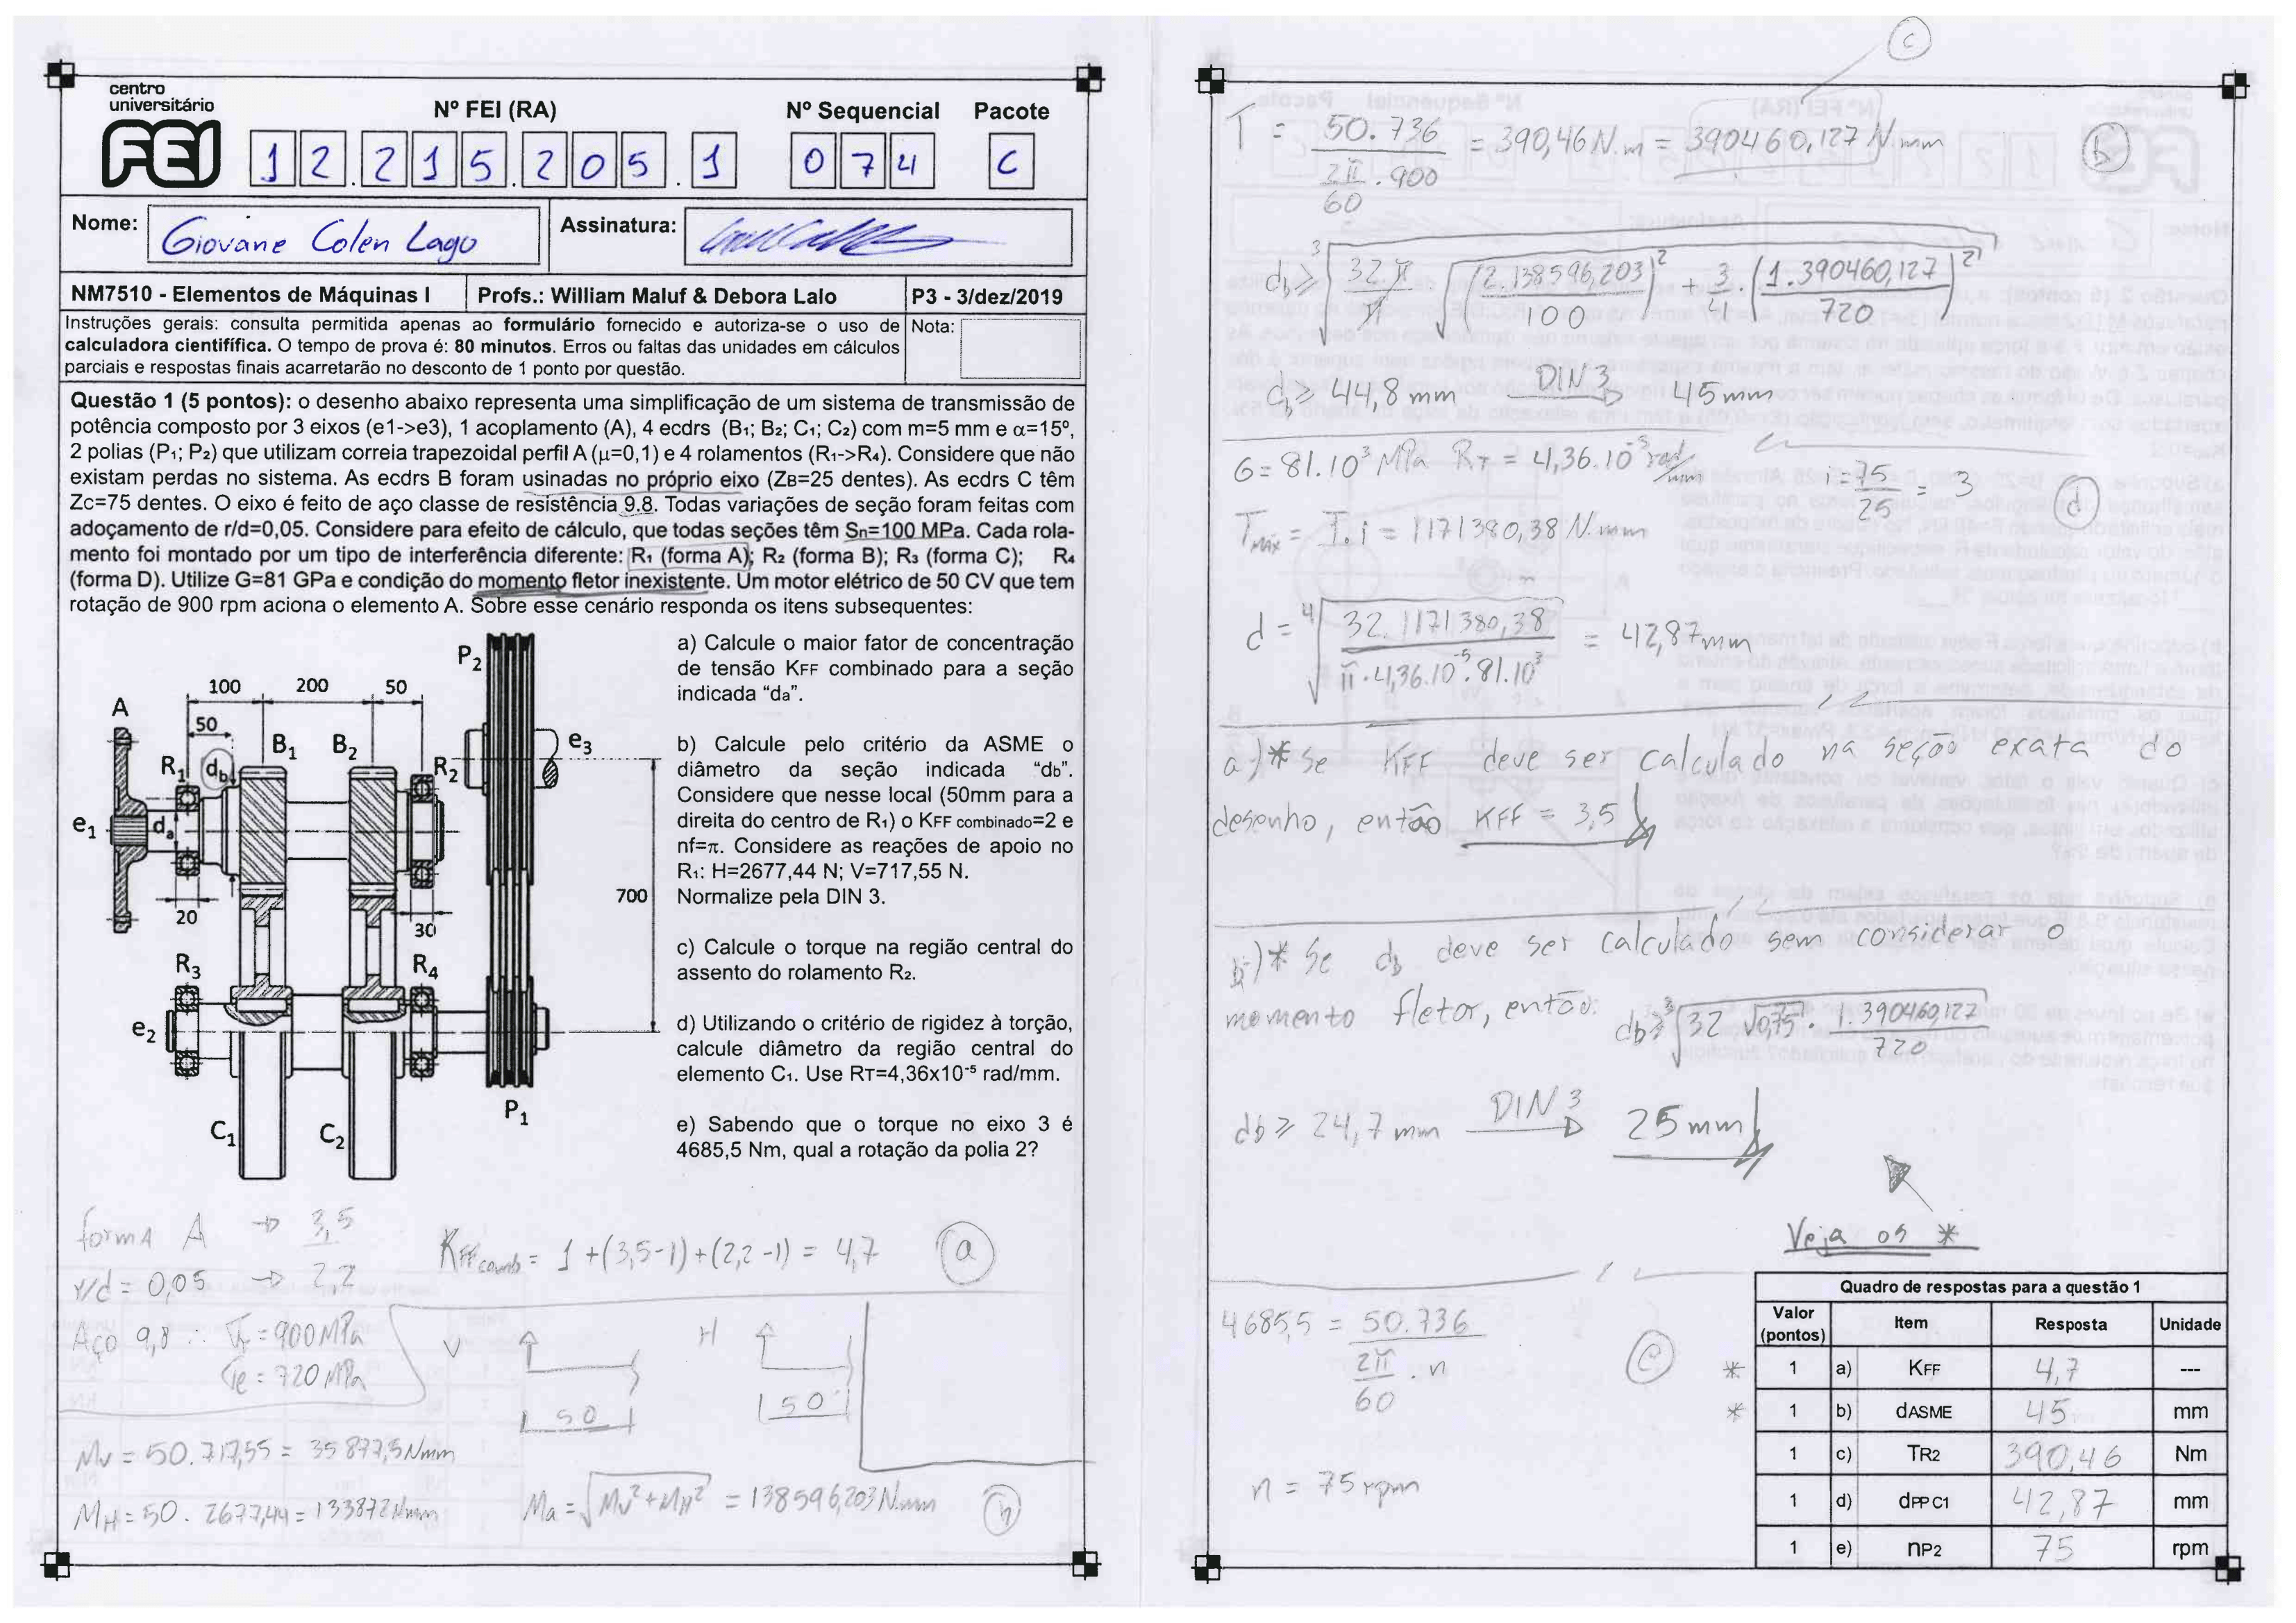 centro
universitário
FEI
Nº FEI (RA)
Nº Sequencial
Pacote
12.215.205.1
074
C
Nome:
Giovane Colen Lago
Assinatura:
NM7510 - Elementos de Máquinas I
Profs.: William Maluf & Debora Lalo
P3 - 3/dez/2019
Instruções gerais: consulta permitida apenas ao formulário fornecido e autoriza-se o uso de
calculadora cientifífica. O tempo de prova é: 80 minutos. Erros ou faltas das unidades em cálculos
parciais e respostas finais acarretarão no desconto de 1 ponto por questão.
Nota:
Questão 1 (5 pontos): o desenho abaixo representa uma simplificação de um sistema de transmissão de
potência composto por 3 eixos (e1->e3), 1 acoplamento (A), 4 ecdrs (B1; B2; C1; C2) com m=5 mm e α=15º,
2 polias (P1; P2) que utilizam correia trapezoidal perfil A (μ=0,1) e 4 rolamentos (R1->R4). Considere que não
existam perdas no sistema. As ecdrs B foram usinadas no próprio eixo (ZB=25 dentes). As ecdrs C têm
Zc=75 dentes. O eixo é feito de aço classe de resistência 9.8. Todas variações de seção foram feitas com
adoçamento de r/d=0,05. Considere para efeito de cálculo, que todas seções têm Sn=100 MPa. Cada rola-
mento foi montado por um tipo de interferência diferente: R1 (forma A); R2 (forma B); R3 (forma C); R4
(forma D). Utilize G=81 GPa e condição do momento fletor inexistente. Um motor elétrico de 50 CV que tem
rotação de 900 rpm aciona o elemento A. Sobre esse cenário responda os itens subsequentes:
100 200 50
50
A
R1
db
B1
B2
R2
P2
e3
e1
da
20
30
700
R3
R4
e2
C1
C2
P1
a) Calcule o maior fator de concentração
de tensão KFF combinado para a seção
indicada “da”.
b) Calcule pelo critério da ASME o
diâmetro da seção indicada “db”.
Considere que nesse local (50mm para a
direita do centro de R1) o KFF combinado=2 e
nf=π. Considere as reações de apoio no
R1: H=2677,44 N; V=717,55 N.
Normalize pela DIN 3.
c) Calcule o torque na região central do
assento do rolamento R2.
d) Utilizando o critério de rigidez à torção,
calcule diâmetro da região central do
elemento C1. Use RT=4,36x10⁻⁵ rad/mm.
e) Sabendo que o torque no eixo 3 é
4685,5 Nm, qual a rotação da polia 2?
forma A → 3,5
r/d = 0,05 → 2,2
KFFcomb = 1 + (3,5-1) + (2,2-1) = 4,7
a
Aço 9,8 ∴ σr = 900 MPa
σe = 720 MPa
V
50
H
50
Mv = 50. 717,55 = 35877,5 Nmm
MH = 50. 2677,44 = 133872 Nmm
Ma = √(Mv² + MH²) = 138596,203 N.mm
b
c
T = 50.736 / (2π/60 . 900) = 390,46 N.m = 390460,127 N.mm
b
db ≥ ³√(32π/π √((2.138596,203/100)² + 3/4 . (1.390460,127/720)²))
db ≥ 44,8 mm DIN 3 → 45 mm
G = 81.10³ MPa RT = 4,36.10⁻⁵ rad/mm
i = 75/25 = 3
d
Tmáx = T.i = 1171380,38 N.mm
d = ⁴√(32.1171380,38 / (π.4,36.10⁻⁵.81.10³)) = 42,87 mm
a-)* Se KFF deve ser calculado na seção exata do
desenho, então KFF = 3,5
b-)* Se db deve ser calculado sem considerar o
momento fletor, então: db ≥ ³√(32 √0,75 . 1.390460,127/720)
db ≥ 24,7 mm DIN 3 → 25 mm
Veja os *
46855 = 50.736 / (2π/60 . n)
e
n = 75 rpm
Quadro de respostas para a questão 1
Valor (pontos) Item Resposta Unidade
* 1 a) KFF 4,7 ---
* 1 b) dASME 45 mm
1 c) TR2 390,46 Nm
1 d) dPP C1 42,87 mm
1 e) nP2 75 rpm